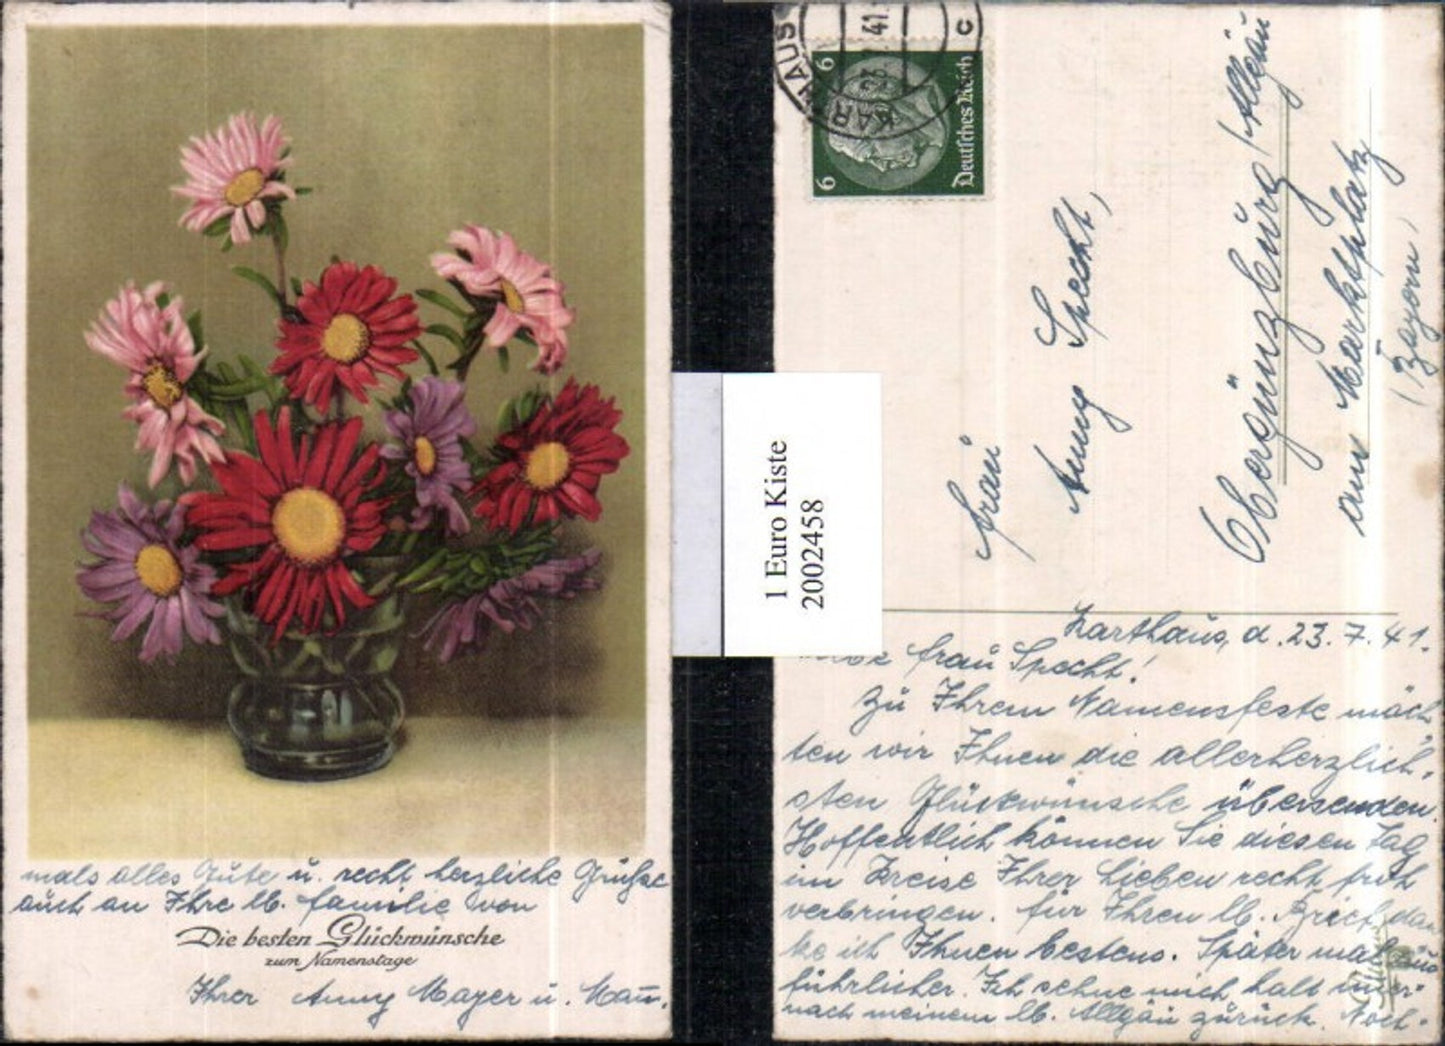 mals alles Gute u. recht herzliche Grüße
auch an Ihre lb. Familie von
Die besten Glückwünsche
zum Namenstage
Ihrer Anny Mayer u. Mann.
1 Euro Kiste
2002458
KARTHAUS
41
c
6
6
Deutsches Reich
Frau
Anny Specht,
Obergünzburg/Allgäu
am Marktplatz
(Bayern)
Karthaus, d. 23.7.41.
Frau Specht!
Zu Ihrem Namensfeste möch
ten wir Ihnen die allerherzlich-
sten Glückwünsche übersenden.
Hoffentlich können Sie diesen Tag
im Kreise Ihrer Lieben recht froh
verbringen. Für Ihren lb. Brief dan
ke ich Ihnen bestens. Später mal aus
führlicher. Ich sehne mich halt immer
nach meinem lb. Allgäu zurück. Noch-